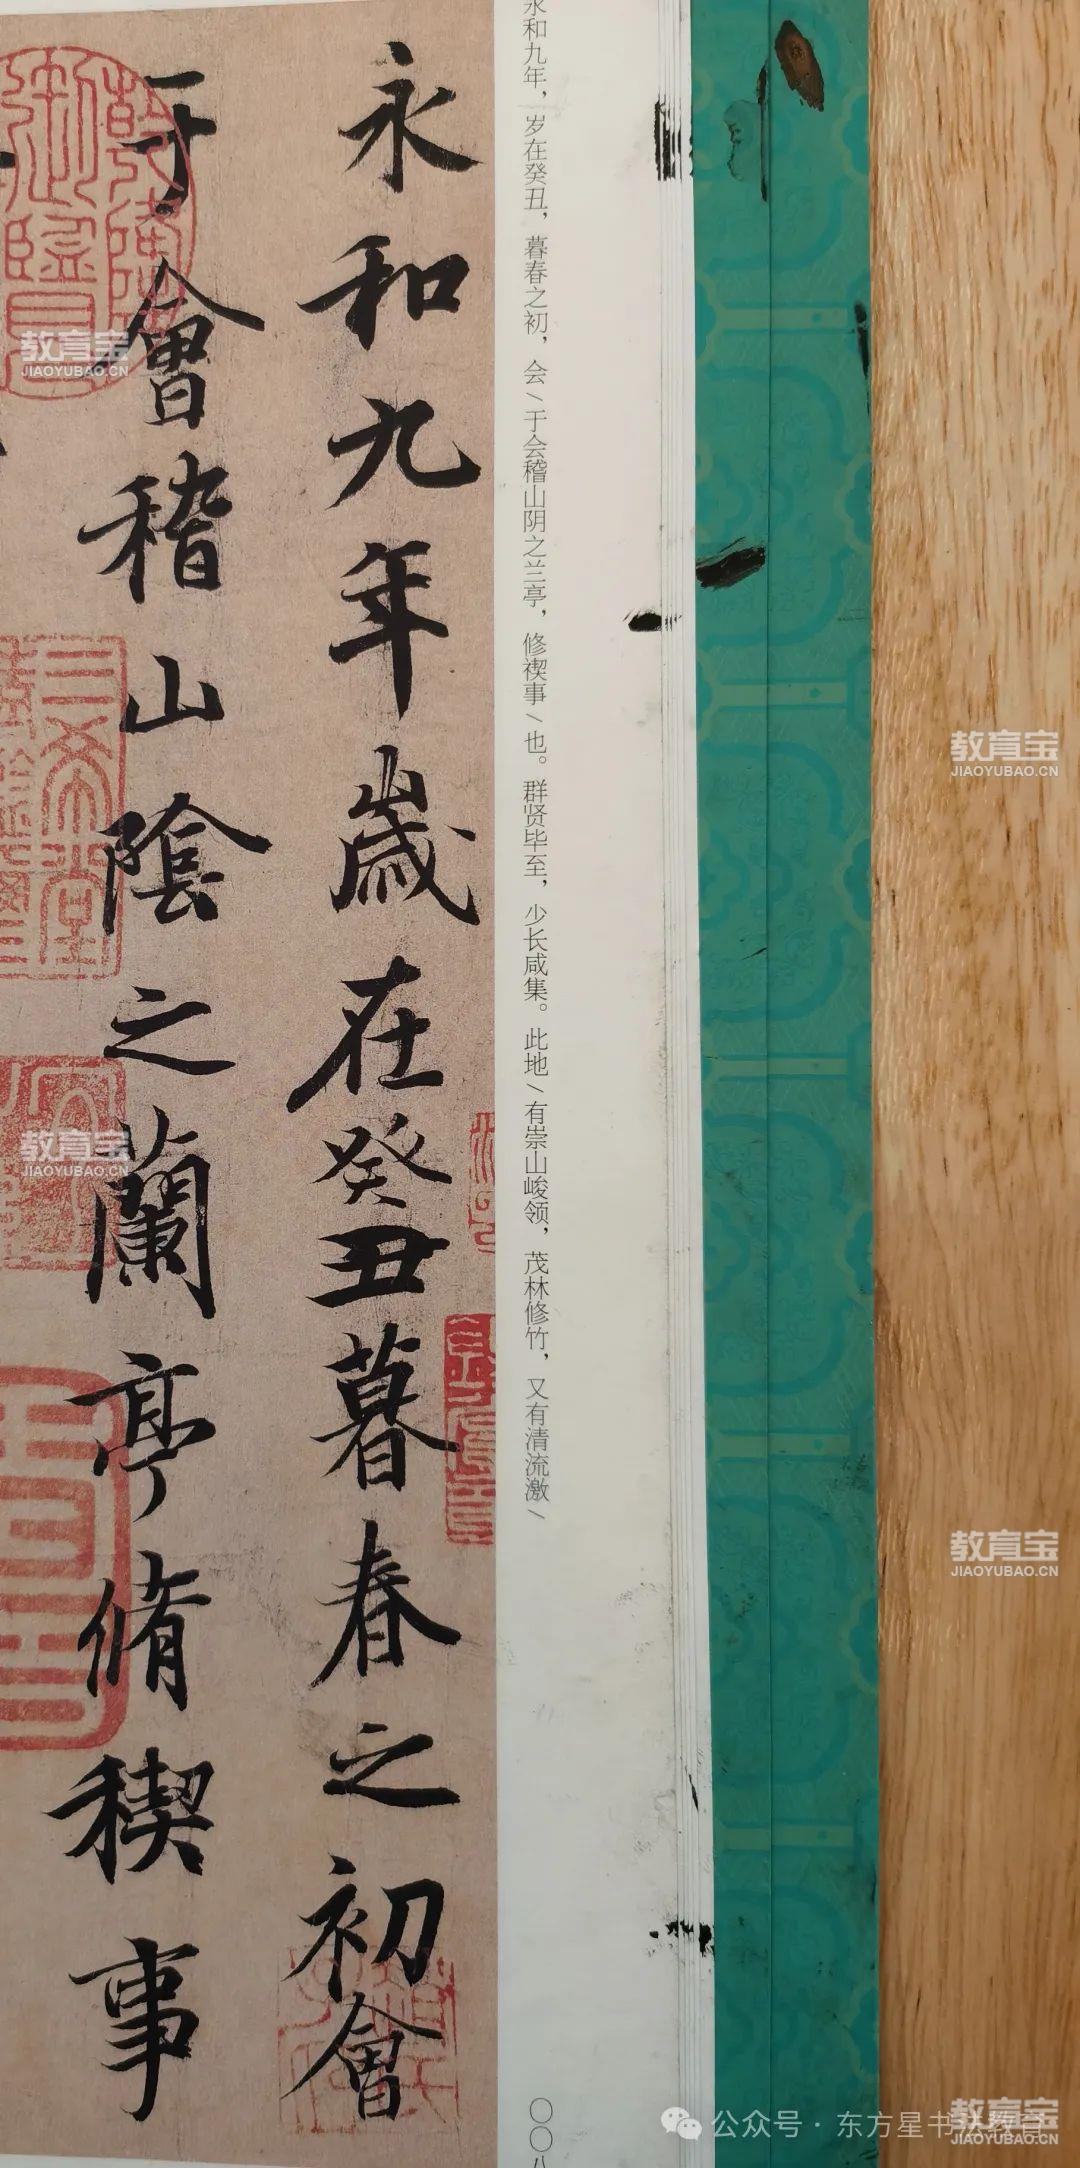 永和九年，岁在癸丑，暮春之初，会\于会稽山阴之兰亭，修禊事\也。群贤毕至，少长咸集。此地\有崇山峻领，茂林修竹，又有清流激\
永和九年歲在癸丑暮春之初會
于會稽山陰之蘭亭脩稧事
〇〇八
教育宝
JIAOYUBAO.CN
教育宝
JIAOYUBAO.CN
教育宝
JIAOYUBAO.CN
教育宝
JIAOYUBAO.CN
教育宝
JIAOYUBAO.CN
公众号·东方星书法教育